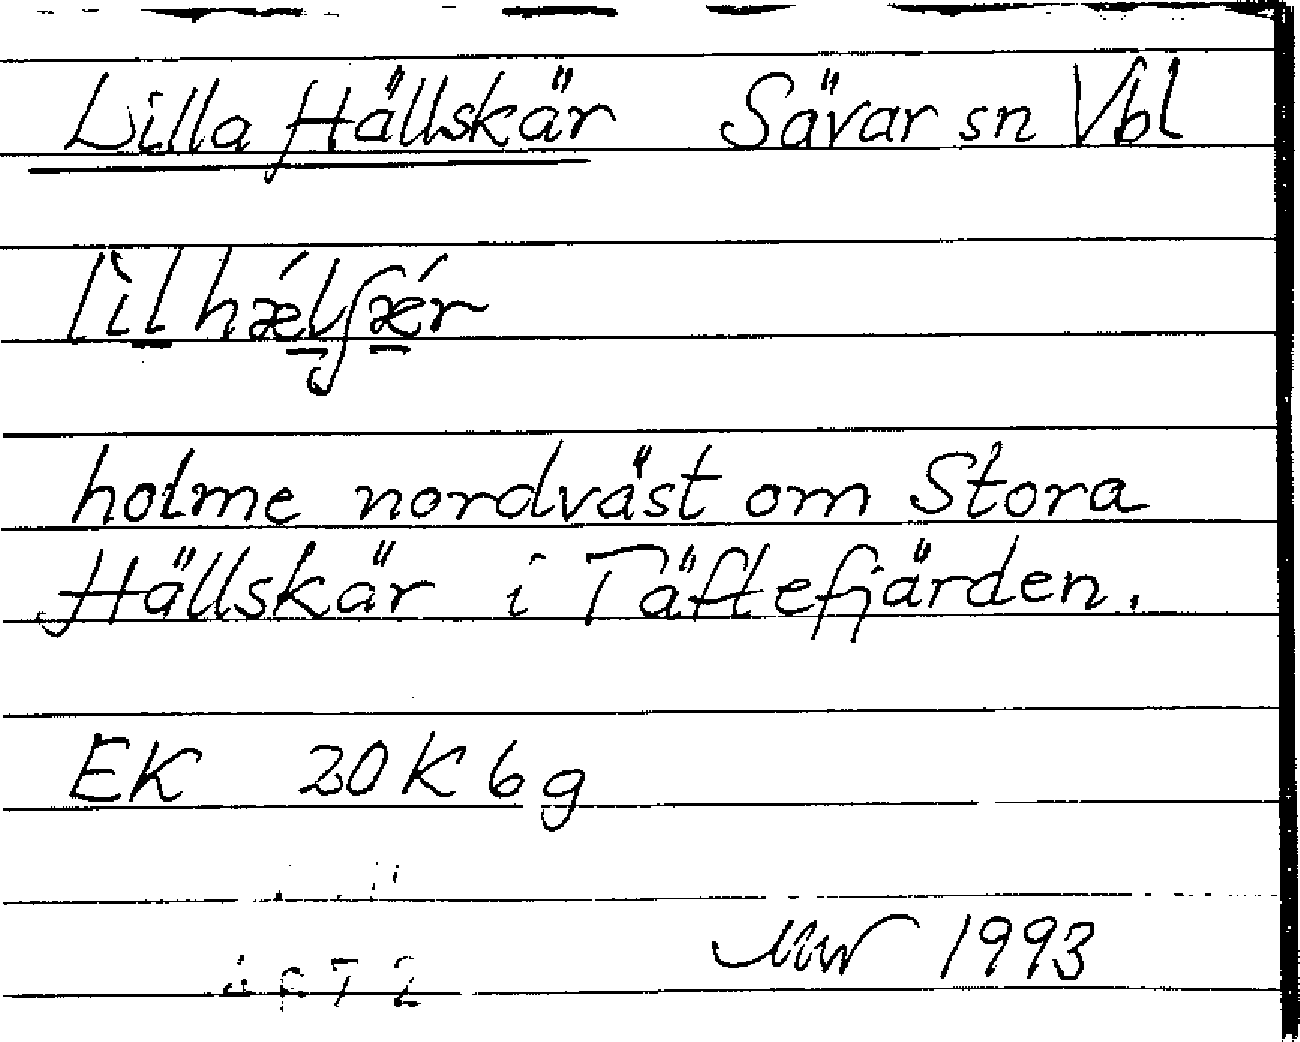 Lilla Hällskär Sävar sn Vbl
lìl hǽlʃǽr
holme nordväst om Stora
Hällskär i Täftefjärden.
EK 20K 6g
1993